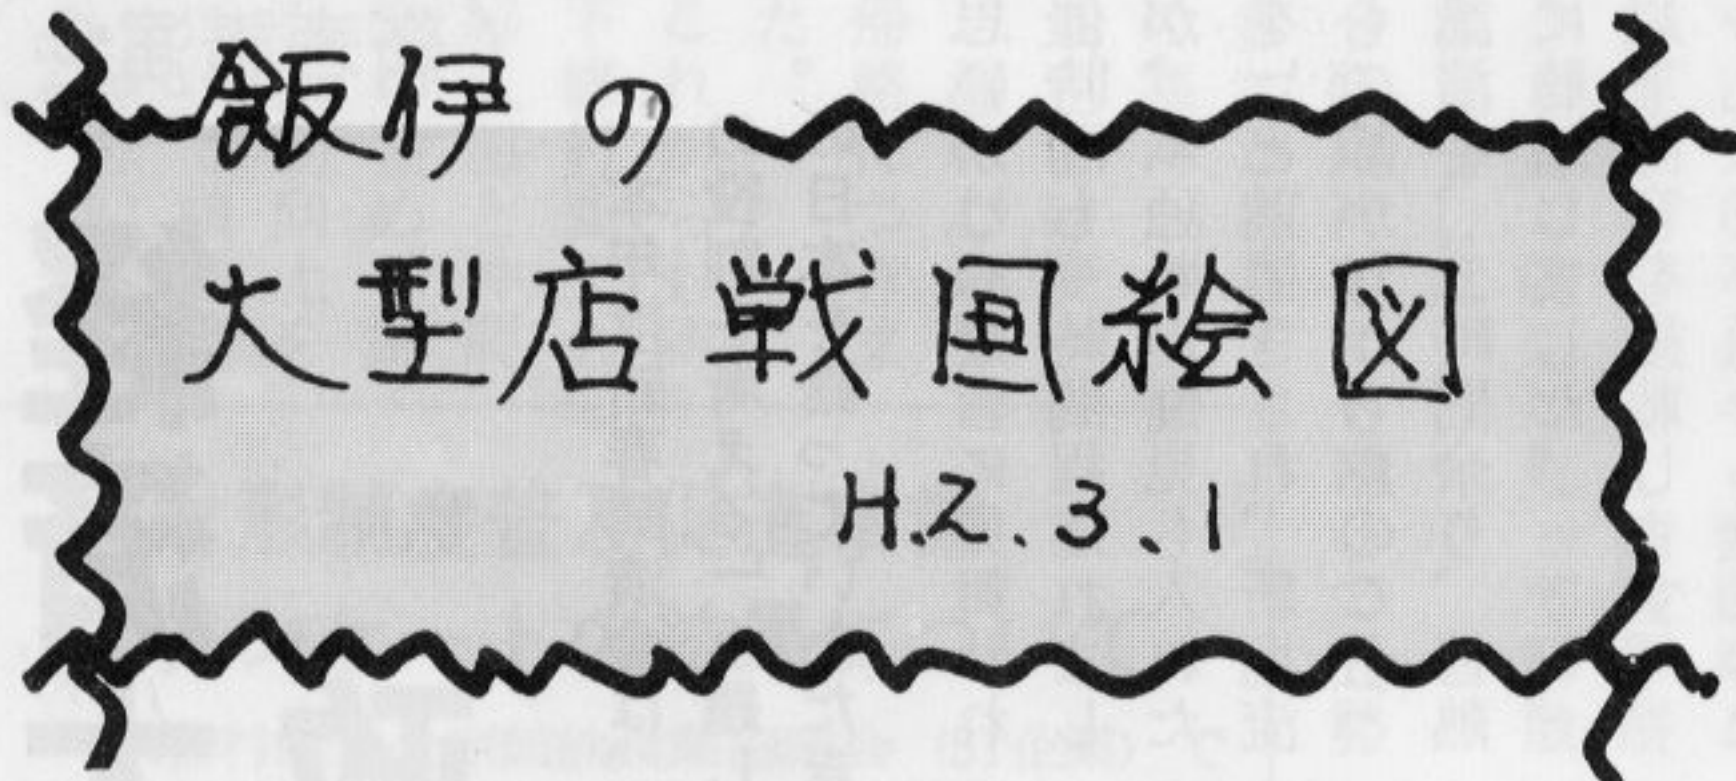 飯伊の
大型店戦国絵図
H.2.3.1